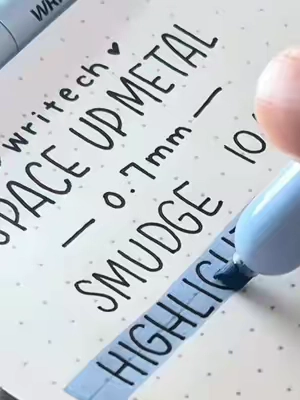 writech
SPACE UP METAL
— 0.7mm —
SMUDGE 10
HIGHLIG